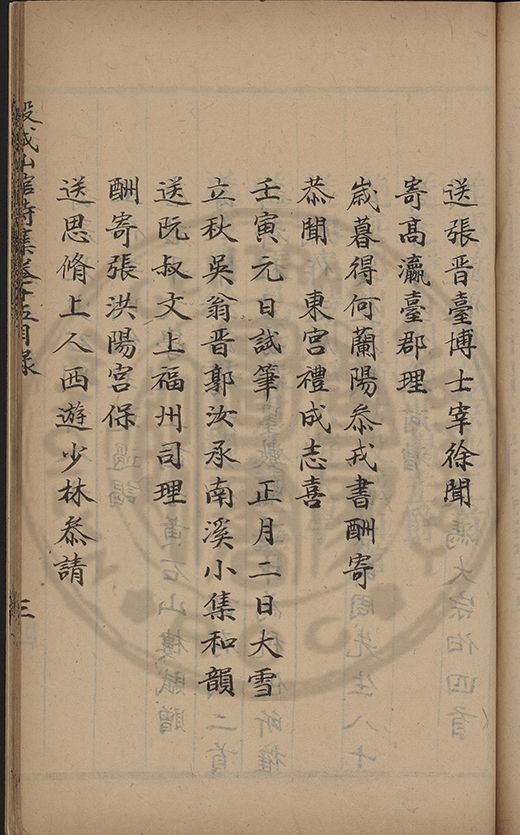 送張晉臺博士宰徐聞
寄高瀛臺郡理
歲暮得何蘭陽叅戎書酬寄
恭聞　東宮禮成志喜
壬寅元日試筆　正月二日大雪
立秋吳翁晉郭汝承南溪小集和韻
送阮叔文上福州司理
酬寄張洪陽宮保
送思脩上人西遊少林叅請
三